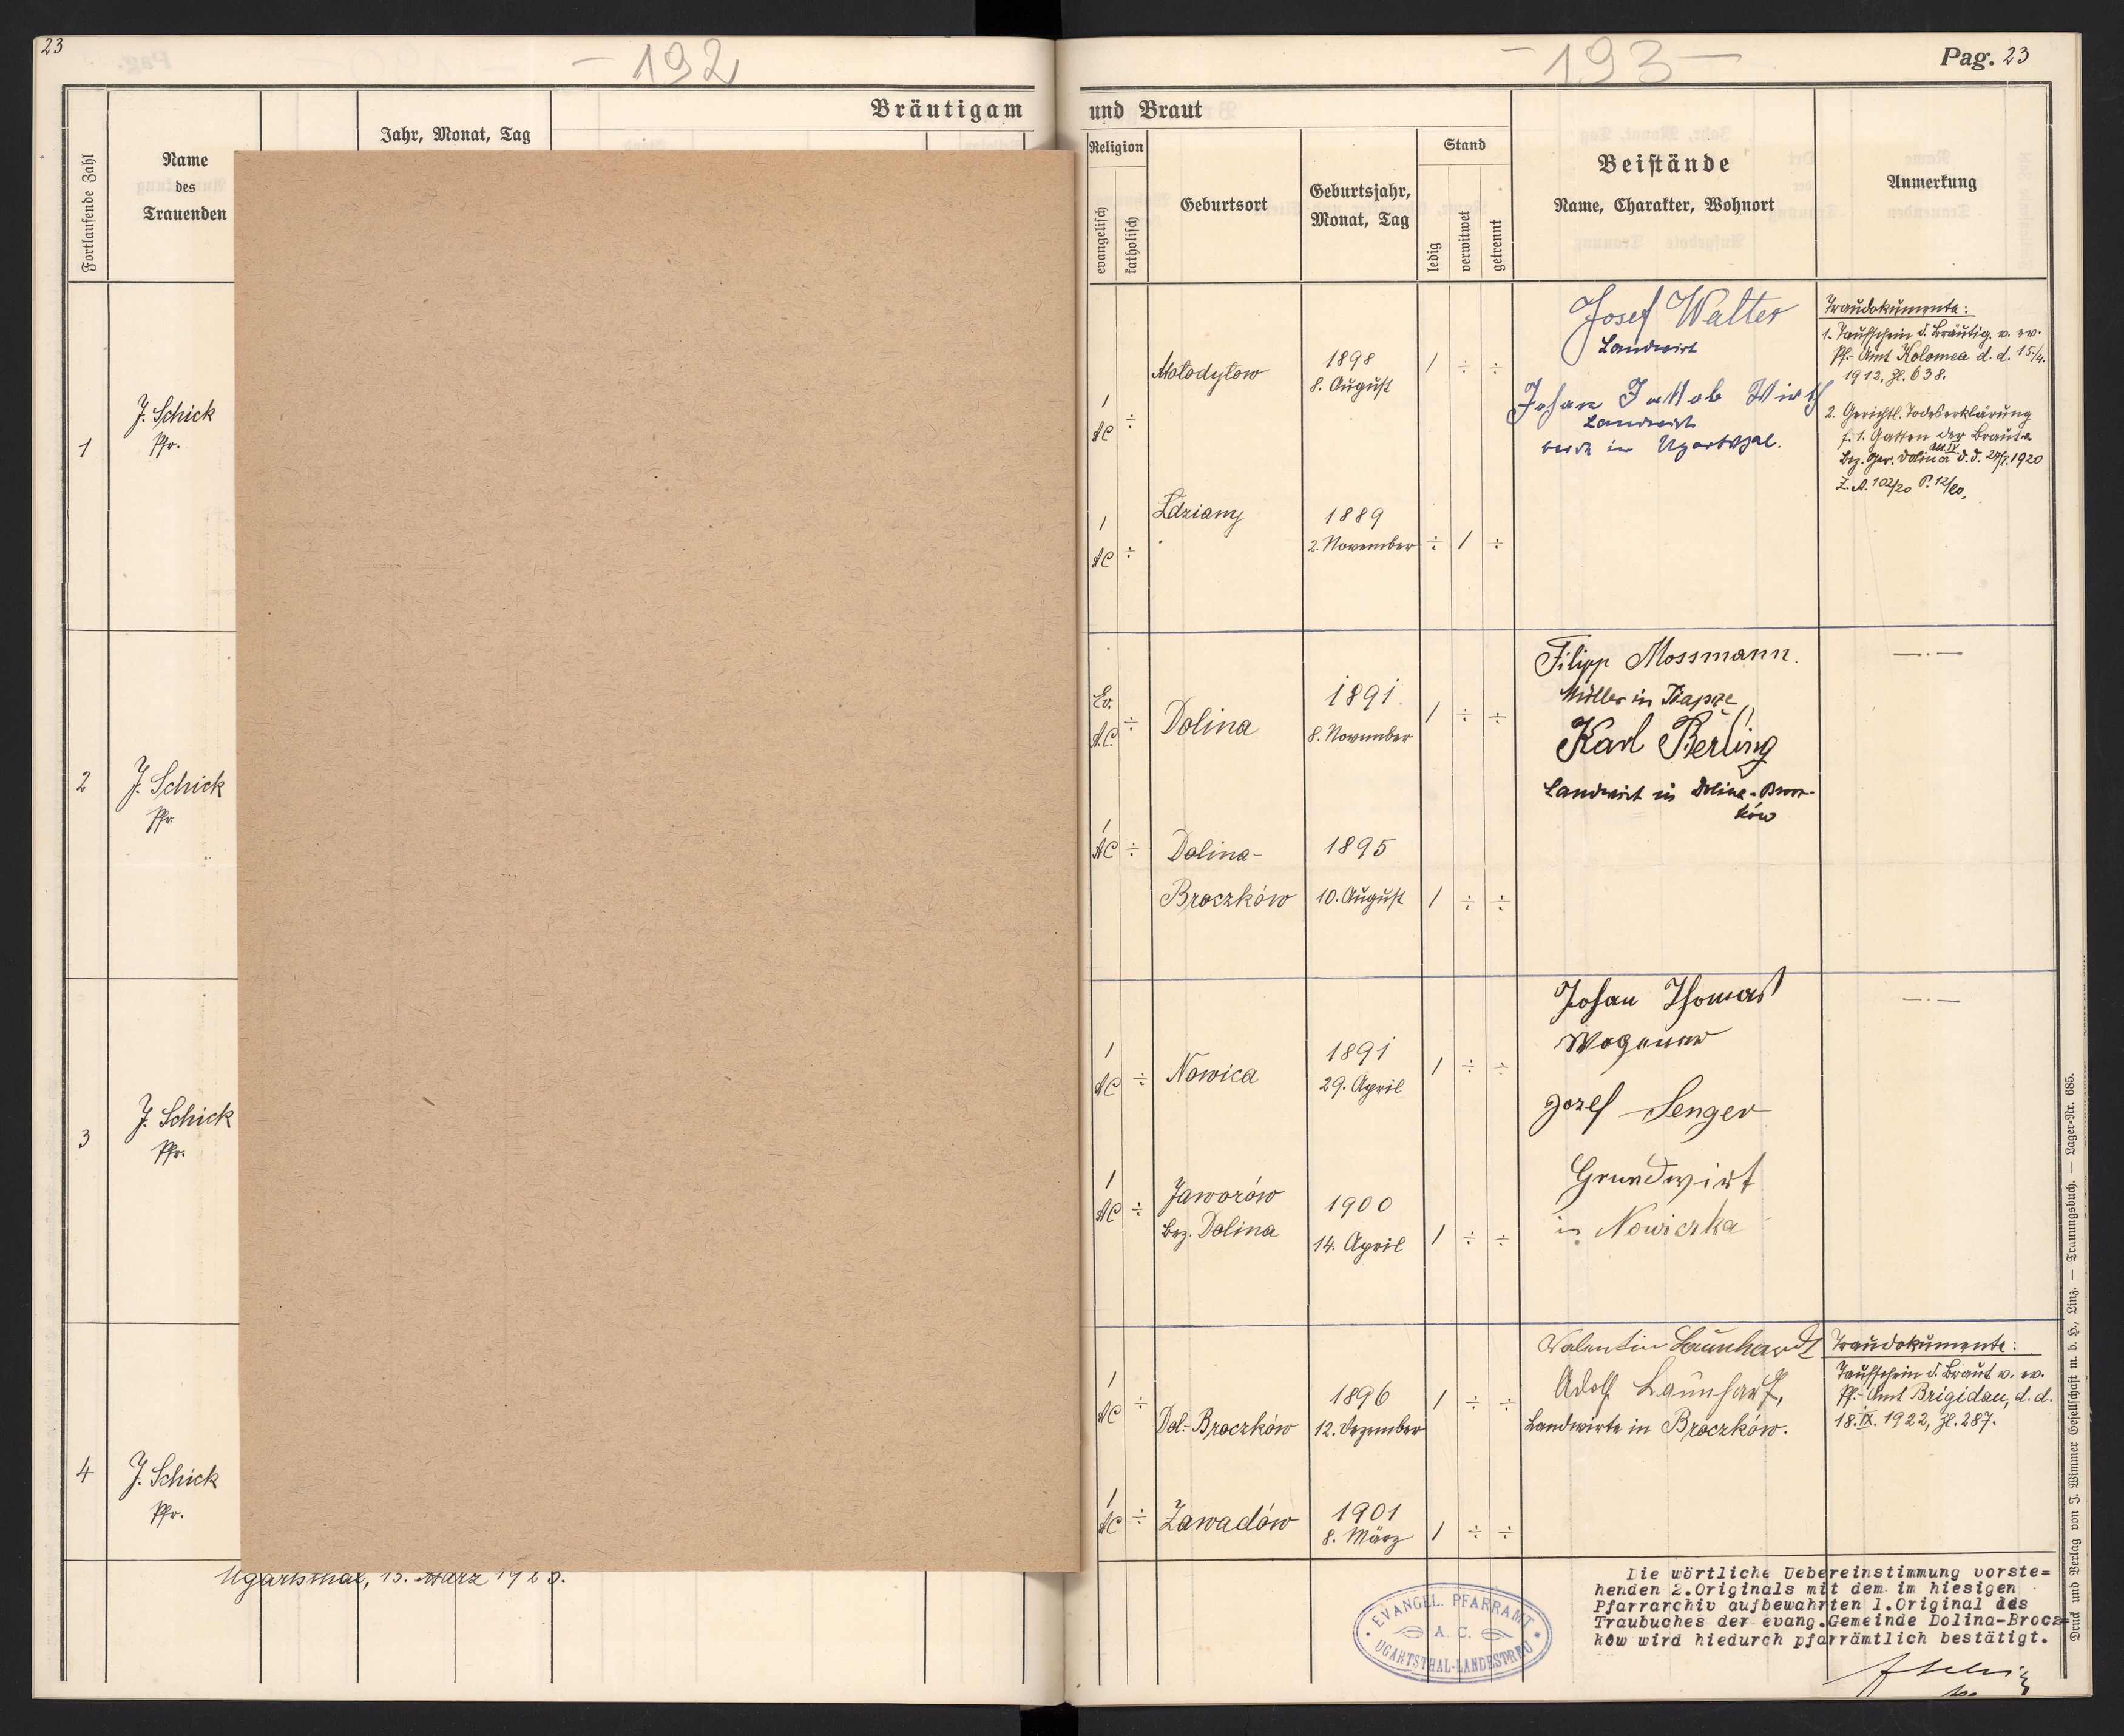 23
- 192
- 193 -
Pag. 23
Bräutigam
und Braut
Fortlaufende Zahl
Name
des
Trauenden
Jahr, Monat, Tag
Religion
evangelisch
katholisch
Geburtsort
Geburtsjahr,
Monat, Tag
Stand
ledig
verwitwet
getrennt
Beistände
Name, Charakter, Wohnort
Anmerkung
1
J. Schick
Pfr.
1
AC ÷
Mołodyłow
1898
8. August
1 ÷ ÷
Josef Walter
Landwirt
Johan Jakob Wirth
Landwirt
beide in Ugartsthal.
Traudokumente:
1. Taufschein d. Bräutig. v. ev.
Pf.-Amt Kolomea d. d. 15./4.
1912, Zl. 638.
2. Gerichtl. Todeserklärung
f. 1. Gatten der Braut
Bez. Ger. Dolina d. d. 1920
Z. A. 102/20 P. 12/20.
1
AC ÷
Ldziany
1889
2. November
÷ 1 ÷
2
J. Schick
Pfr.
Ev.
A.C. ÷
Dolina
1891
8. November
1 ÷ ÷
Filipp Mossmann.
Müller in
Karl Berling
Landwirt in Dolina-Brocz-
ków
—·—
1
AC ÷
Dolina-
Broczków
1895
10. August
1 ÷ ÷
3
J. Schick
Pfr.
1
AC ÷
Nowica
1891
29. April
1 ÷ ÷
Johan Thomas
Wagener
Josef Senger
Grundwirt
in Nowiczka
—·—
1
AC ÷
Jaworów
Bez. Dolina
1900
14. April
1 ÷ ÷
4
J. Schick
Pfr.
1
AC ÷
Dol.-Broczków
1896
12. Dezember
1 ÷ ÷
Valentin Launhardt
Adolf Launhardt,
Landwirte in Broczków.
Traudokumente:
Taufschein d. Braut v. ev.
Pf.-Amt Brigidau, d. d.
18.IX. 1922, Zl. 287.
1
AC ÷
Zawadów
1901
8. März
1 ÷ ÷
Ugartsthal, 15. März 1923.
EVANGEL. PFARRAMT
A. C.
UGARTSTHAL-LANDESTREU
Die wörtliche Uebereinstimmung vorste=
henden 2.Originals mit dem im hiesigen
Pfarrarchiv aufbewahrten 1.Original des
Traubuches der evang.Gemeinde Dolina-Brocz=
kow wird hiedurch pfarrämtlich bestätigt.
Druck und Verlag von J. Wimmer Gesellschaft m. b. H., Linz. — Trauungsbuch. — Lager-Nr. 685.